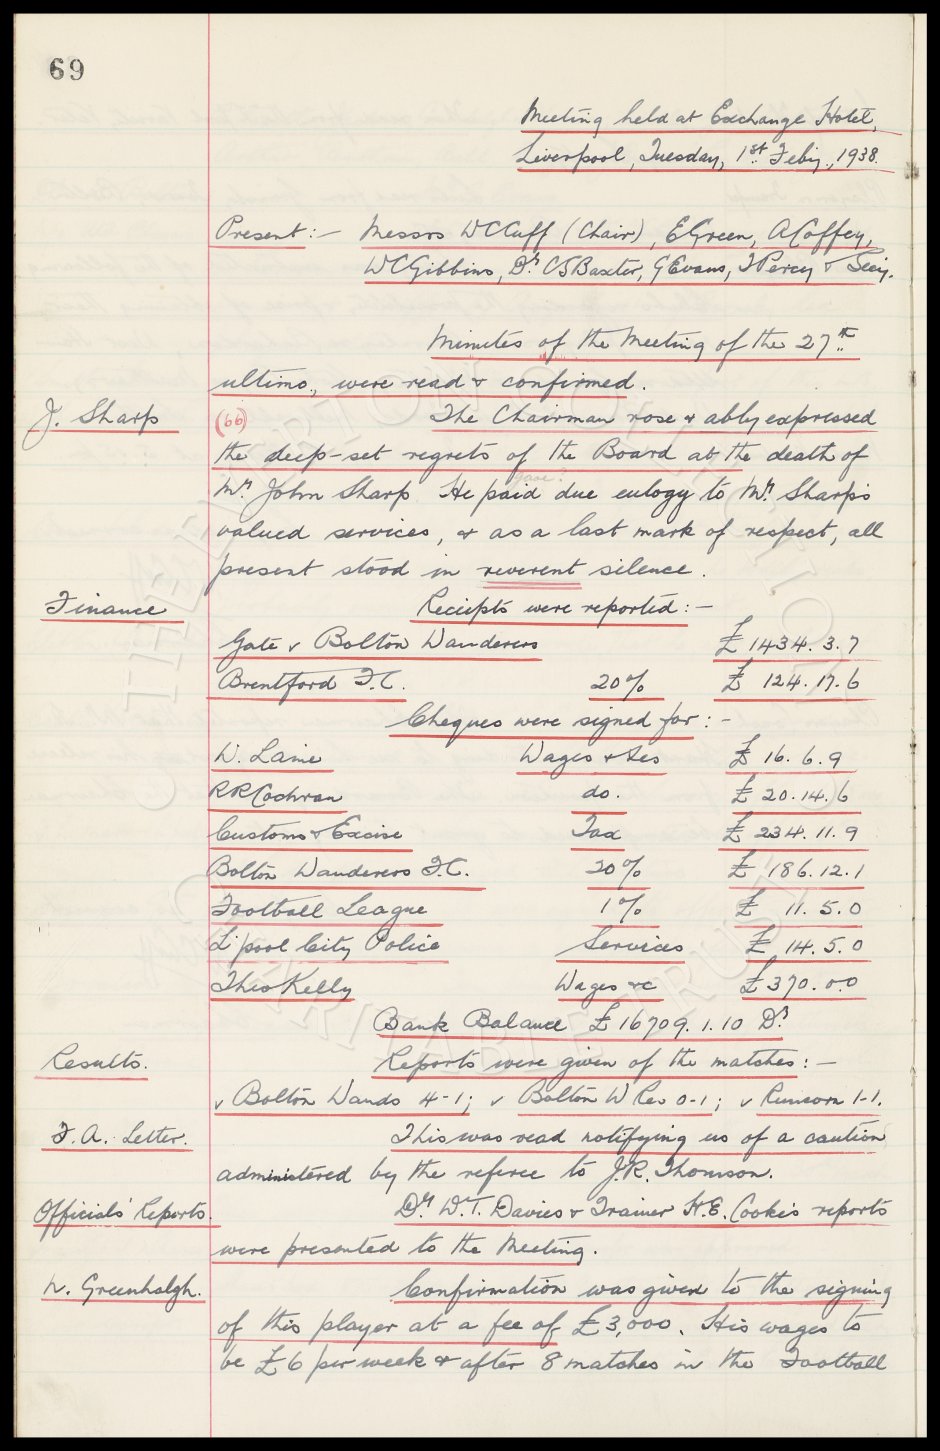 69
Meeting held at Exchange Hotel,
Liverpool, Tuesday, 1st Feby., 1938.
Present:- Messrs W C Cuff (Chair), E Green, A Coffey,
W C Gibbins, Dr. C S Baxter, G Evans, T Percy & Secy.
Minutes of the Meeting of the 27th
ultimo, were read & confirmed.
J. Sharp (66) The Chairman rose & ably expressed
the deep-set regrets of the Board at the death of
Mr John Sharp. He paid due eulogy to Mr Sharp's
gave?
valued services, & as a last mark of respect, all
present stood in reverent silence.
Finance Receipts were reported:-
Gate v Bolton Wanderers £ 1434. 3. 7
Brentford F.C. 20% £ 124. 17. 6
Cheques were signed for:-
W. Laine Wages & Tes £ 16. 6. 9
R R Cochran do. £ 20. 14. 6
Customs & Excise Tax £ 234. 11. 9
Bolton Wanderers F.C. 20% £ 186. 12. 1
Football League 1% £ 11. 5. 0
L'pool City Police Services £ 14. 5. 0
Theo Kelly Wages &c £ 370. 0. 0
Bank Balance £ 16709. 1. 10 Dr
Results. Reports were given of the matches:-
v Bolton Wands 4-1; v Bolton W Res 0-1; v Runcorn 1-1.
F.A. Letter. This was read notifying us of a caution
administered by the referee to J.R. Thomson.
Officials' Reports. Dr. W.T. Davies & Trainer H.E. Cooke's reports
were presented to the Meeting.
N. Greenhalgh. Confirmation was given to the signing
of this player at a fee of £3,000. His wages to
be £6 per week & after 8 matches in the Football
THE EVERTON COLLECTION CHARITABLE TRUST